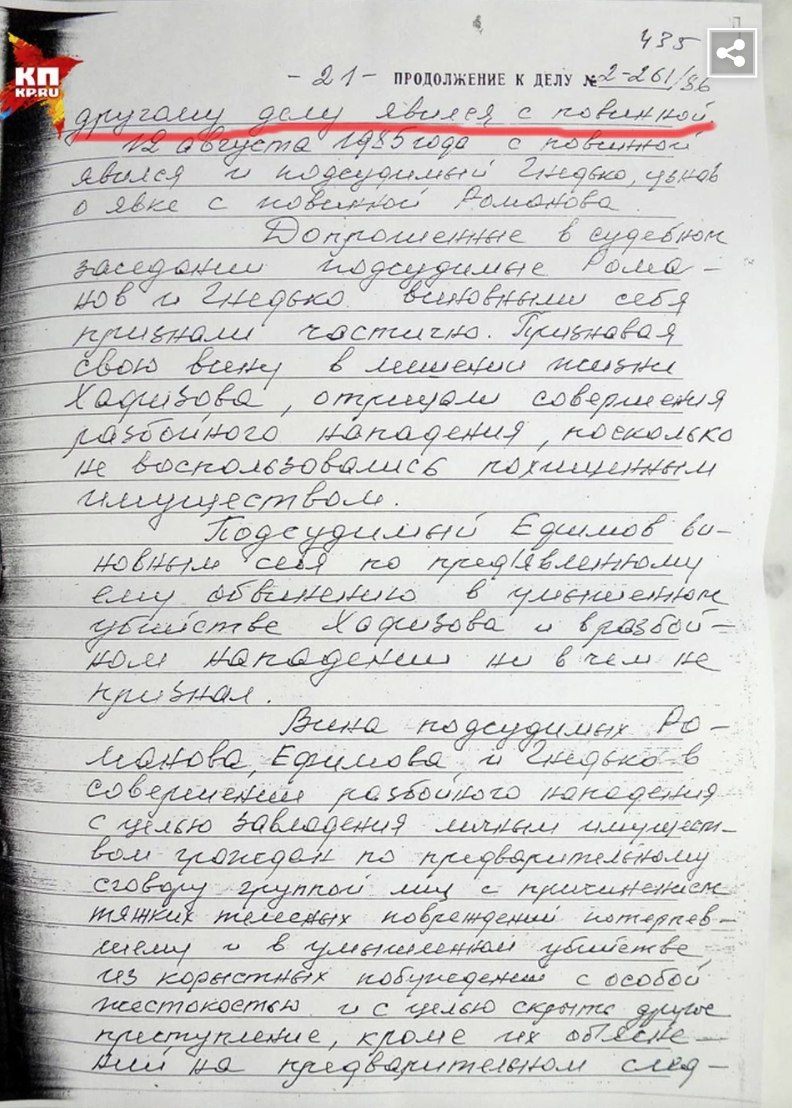 435
КП
KP.RU
- 21 - ПРОДОЛЖЕНИЕ К ДЕЛУ № 2-261/86
другому делу явился с повинной.
12 августа 1985 года с повинной
явился и подсудимый Гнедько, узнав
о явке с повинной Романова.
Допрошенные в судебном
заседании подсудимые Рома-
нов и Гнедько виновными себя
признали частично. Признавая
свою вину в лишении жизни
Хафизова, отрицали совершения
разбойного нападения, поскольку
не воспользовались похищенным
имуществом.
Подсудимый Ефимов ви-
новным себя по предъявленному
ему обвинению в умышленном
убийстве Хафизова и в разбой-
ном нападении ни в чем не
признал.
Вина подсудимых Ро-
манова, Ефимова и Гнедько в
совершении разбойного нападения
с целью завладения личным имущест-
вом граждан по предварительному
сговору группой лиц с причинением
тяжких телесных повреждений потерпев-
шему и в умышленной убийстве,
из корыстных побуждений с особой
жестокостью и с целью скрыть другое
преступление, кроме их объясне-
ний на предварительном след-